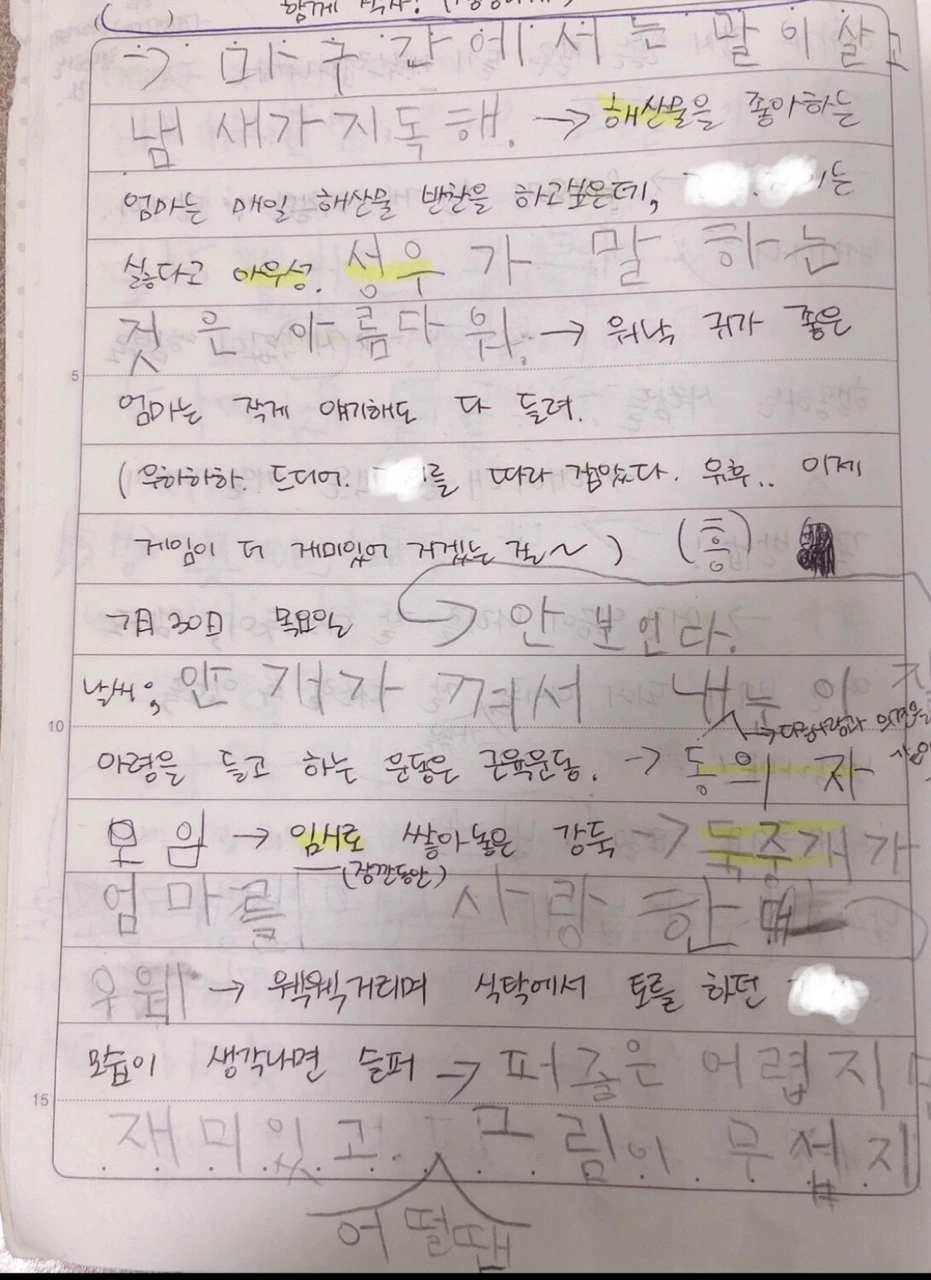 함께
→ 마구간에서는 말이살고
냄새가지독해. → 해산물을 좋아하는
엄마는 매일 해산물 반찬을 하고보은데, 는
싫다고 아우성. 성우가 말하는
것은 아름다워. → 워낙 귀가 좋은
5
엄마는 작게 얘기해도 다 들려.
(우하하하. 드디어. 를 따라 잡았다. 우후.. 이제
게임이 더 재미있어 지겠는 걸~) (흥)
7月 30日 목요일 → 안보인다.
날씨; 안개가 껴서 내눈이
10
→다른사람과 의견을
아령을 들고 하는 운동은 근육운동. → 동의자
모임 → 임시로 쌓아놓은 강둑 → 둑중개가
(잠깐동안)
엄마를 사랑한
우웩 → 웩웩거리며 식탁에서 토를 하던
모습이 생각나면 슬퍼 → 퍼즐은 어렵지
15
재미있고. 그림이 무섭지
어떨땐